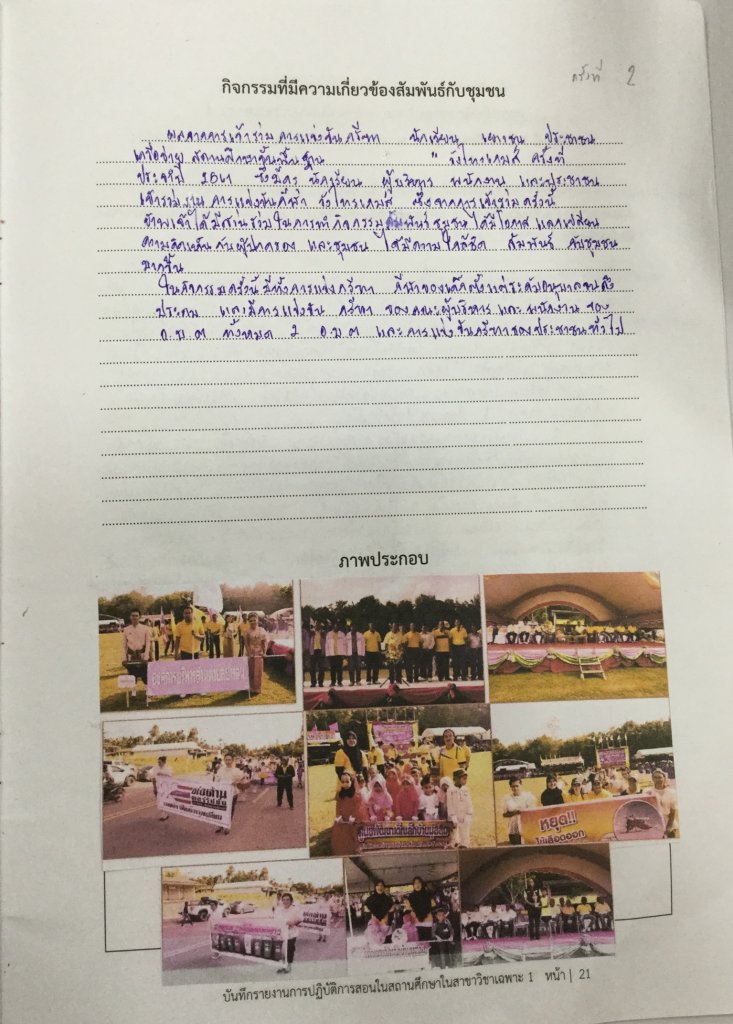 ครั้งที่ 2
กิจกรรมที่มีความเกี่ยวข้องสัมพันธ์กับชุมชน
ผลจากการเข้าร่วมการแข่งขันกรีฑา นักเรียน เยาวชน ประชาชน
เครือข่าย สถานศึกษาขั้นพื้นฐาน " วังไทรเกมส์ ครั้งที่
ประจำปี 2561 ซึ่งมีครู นักเรียน ผู้บริหาร พนักงาน และประชาชน
เข้าร่วมงานการแข่งขันกีฬา วังไทรเกมส์ ซึ่งจากการเข้าร่วมครั้งนี้
ข้าพเจ้าได้มีส่วนร่วมในการทำกิจกรรมสัมพันธ์ชุมชน ได้มีโอกาสแลกเปลี่ยน
ความคิดเห็นกับผู้ปกครอง และชุมชน ได้มีความใกล้ชิด สัมพันธ์ กับชุมชน
มากขึ้น
ในกิจกรรมครั้งนี้ มีทั้งการแข่งกรีฑา กีฬาของเด็กตั้งแต่ระดับอนุบาลจนถึง
ประถม และมีการแข่งขัน กรีฑา ของคณะผู้บริหารและพนักงาน ของ
อ.บ.ต ทั้งหมด 2 อ.บ.ต และการแข่งขันกรีฑาของประชาชนทั่วไป
ภาพประกอบ
หยุด!!
ไข้เลือดออก
บันทึกรายงานการปฏิบัติการสอนในสถานศึกษาในสาขาวิชาเฉพาะ 1 หน้า | 21